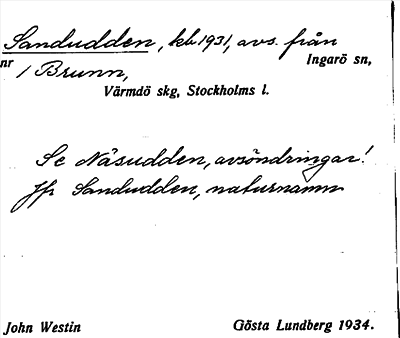 Sandudden, kb. 1931, avs. från
Ingarö sn,
nr 1 Brunn,
Värmdö skg, Stockholms l.
Se Näsudden, avsöndringar!
Jfr Sandudden, naturnamn
John Westin
Gösta Lundberg 1934.